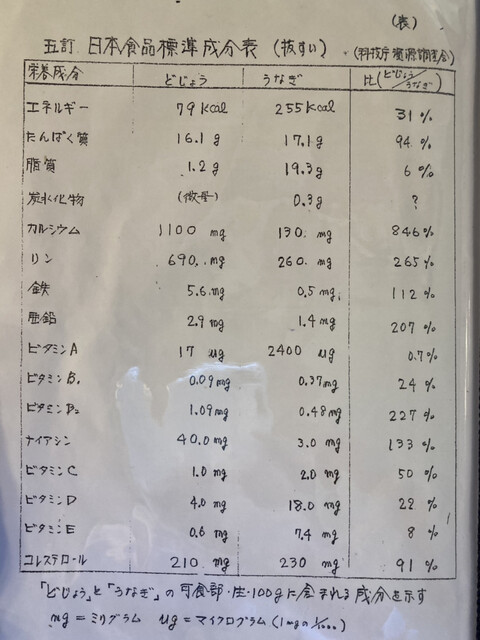 (表)
五訂 日本食品標準成分表 (抜すい) (科技庁資源調査会)
栄養成分 どじょう うなぎ 比(どじょう/うなぎ)
エネルギー 79 Kcal 255 Kcal 31 %
たんぱく質 16.1 g 17.1 g 94 %
脂質 1.2 g 19.3 g 6 %
炭水化物 (微量) 0.3 g ?
カルシウム 1100 mg 130. mg 846 %
リン 690. mg 260. mg 265 %
鉄 5.6 mg 0.5 mg 112 %
亜鉛 2.9 mg 1.4 mg 207 %
ビタミンA 17 μg 2400 μg 0.7 %
ビタミンB₁ 0.09 mg 0.37 mg 24 %
ビタミンB₂ 1.09 mg 0.48 mg 227 %
ナイアシン 40.0 mg 3.0 mg 133 %
ビタミンC 1.0 mg 2.0 mg 50 %
ビタミンD 4.0 mg 18.0 mg 22 %
ビタミンE 0.6 mg 7.4 mg 8 %
コレステロール 210 mg 230 mg 91 %
「どじょう」と「うなぎ」の可食部・生・100gに含まれる成分を示す
mg = ミリグラム μg = マイクログラム (1mgの1/1000)